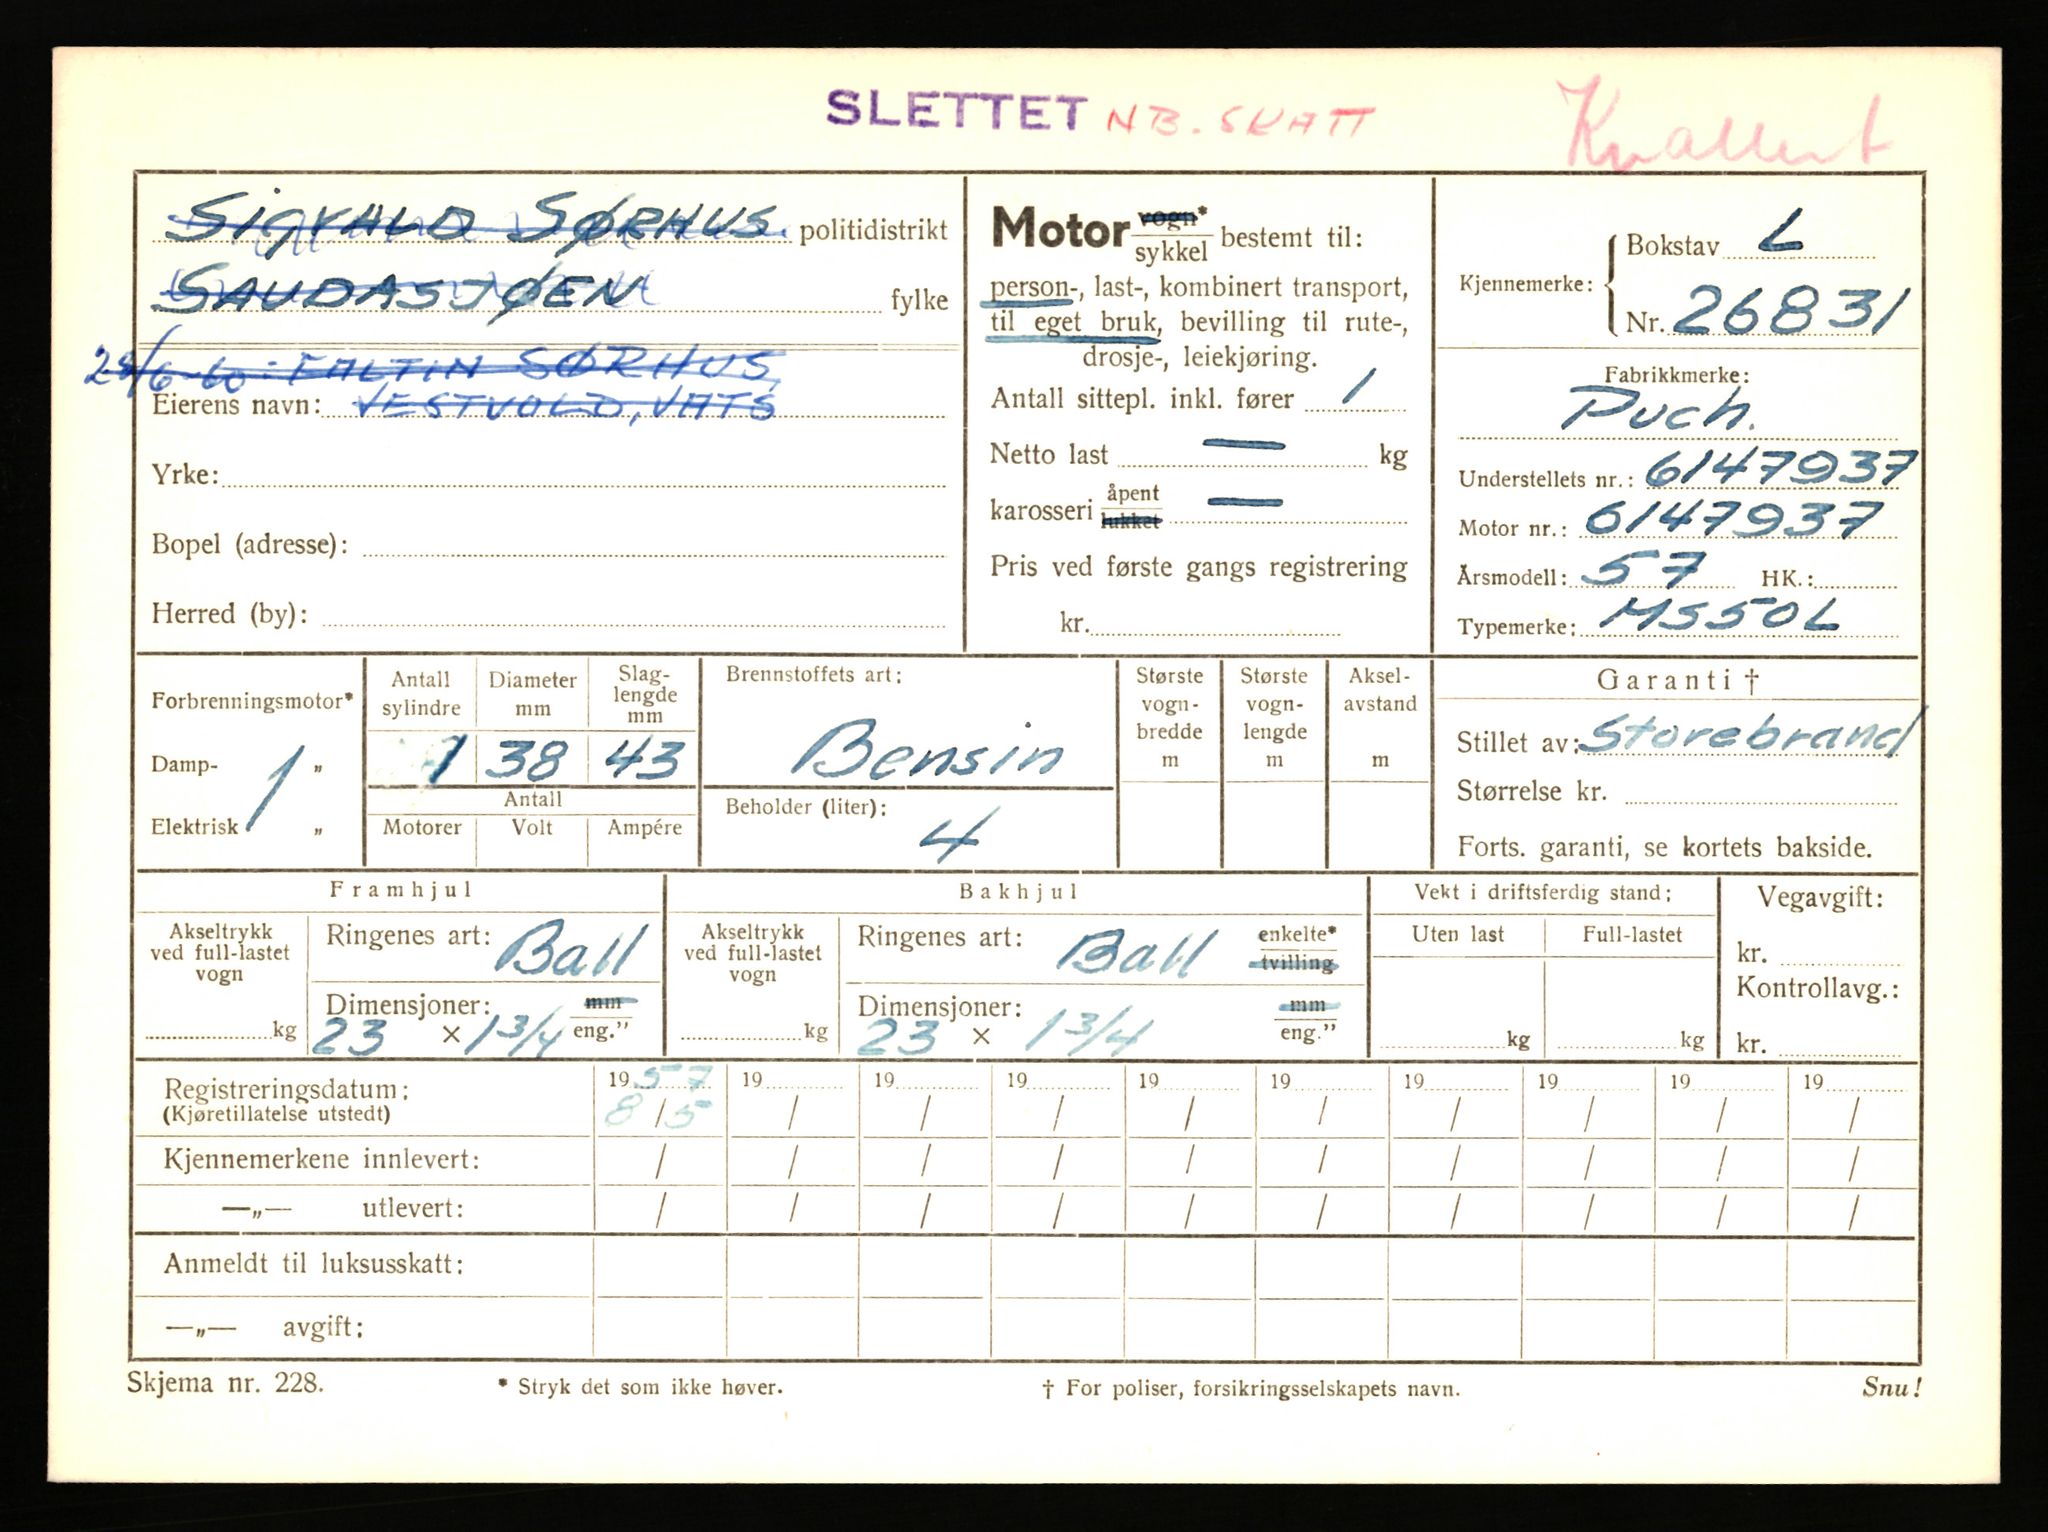 SLETTET NB. SKATT
SIGVALD SØRHUS politidistrikt
SAUDASJØEN fylke
28/6-60: FALTIN SØRHUS,
Eierens navn: VESTVOLD, VATS
Yrke:
Bopel (adresse):
Herred (by):
Motor vogn* sykkel bestemt til:
person-, last-, kombinert transport,
til eget bruk, bevilling til rute-,
drosje-, leiekjøring.
Antall sittepl. inkl. fører 1
Netto last — kg
karosseri åpent lukket —
Pris ved første gangs registrering
kr.
Kjennemerke: Bokstav L
Nr. 26831
Fabrikkmerke:
Puch.
Understellets nr.: 6147937
Motor nr.: 6147937
Årsmodell: 57 HK.:
Typemerke: MS50L
Forbrenningsmotor*
Damp- „
Elektrisk „
1
Antall sylindre Diameter mm Slag-lengde mm
1 38 43
Antall
Motorer Volt Ampére
Brennstoffets art:
Bensin
Beholder (liter):
4
Største vogn-bredde m
Største vogn-lengde m
Aksel-avstand m
Garanti †
Stillet av: Storebrand
Størrelse kr.
Forts. garanti, se kortets bakside.
Framhjul
Akseltrykk ved full-lastet vogn
kg
Ringenes art: Ball
Dimensjoner: mm
23 × 1 3/4 eng."
Bakhjul
Akseltrykk ved full-lastet vogn
kg
Ringenes art: Ball enkelte* tvilling
Dimensjoner: mm
23 × 1 3/4 eng."
Vekt i driftsferdig stand:
Uten last Full-lastet
kg kg
Vegavgift:
kr.
Kontrollavg.:
kr.
Registreringsdatum: 1957 19 19 19 19 19 19 19 19 19
(Kjøretillatelse utstedt) 8/5 / / / / / / / / /
Kjennemerkene innlevert: / / / / / / / / / /
—„— utlevert: / / / / / / / / / /
Anmeldt til luksusskatt:
—„— avgift:
Skjema nr. 228. * Stryk det som ikke høver. † For poliser, forsikringsselskapets navn. Snu!